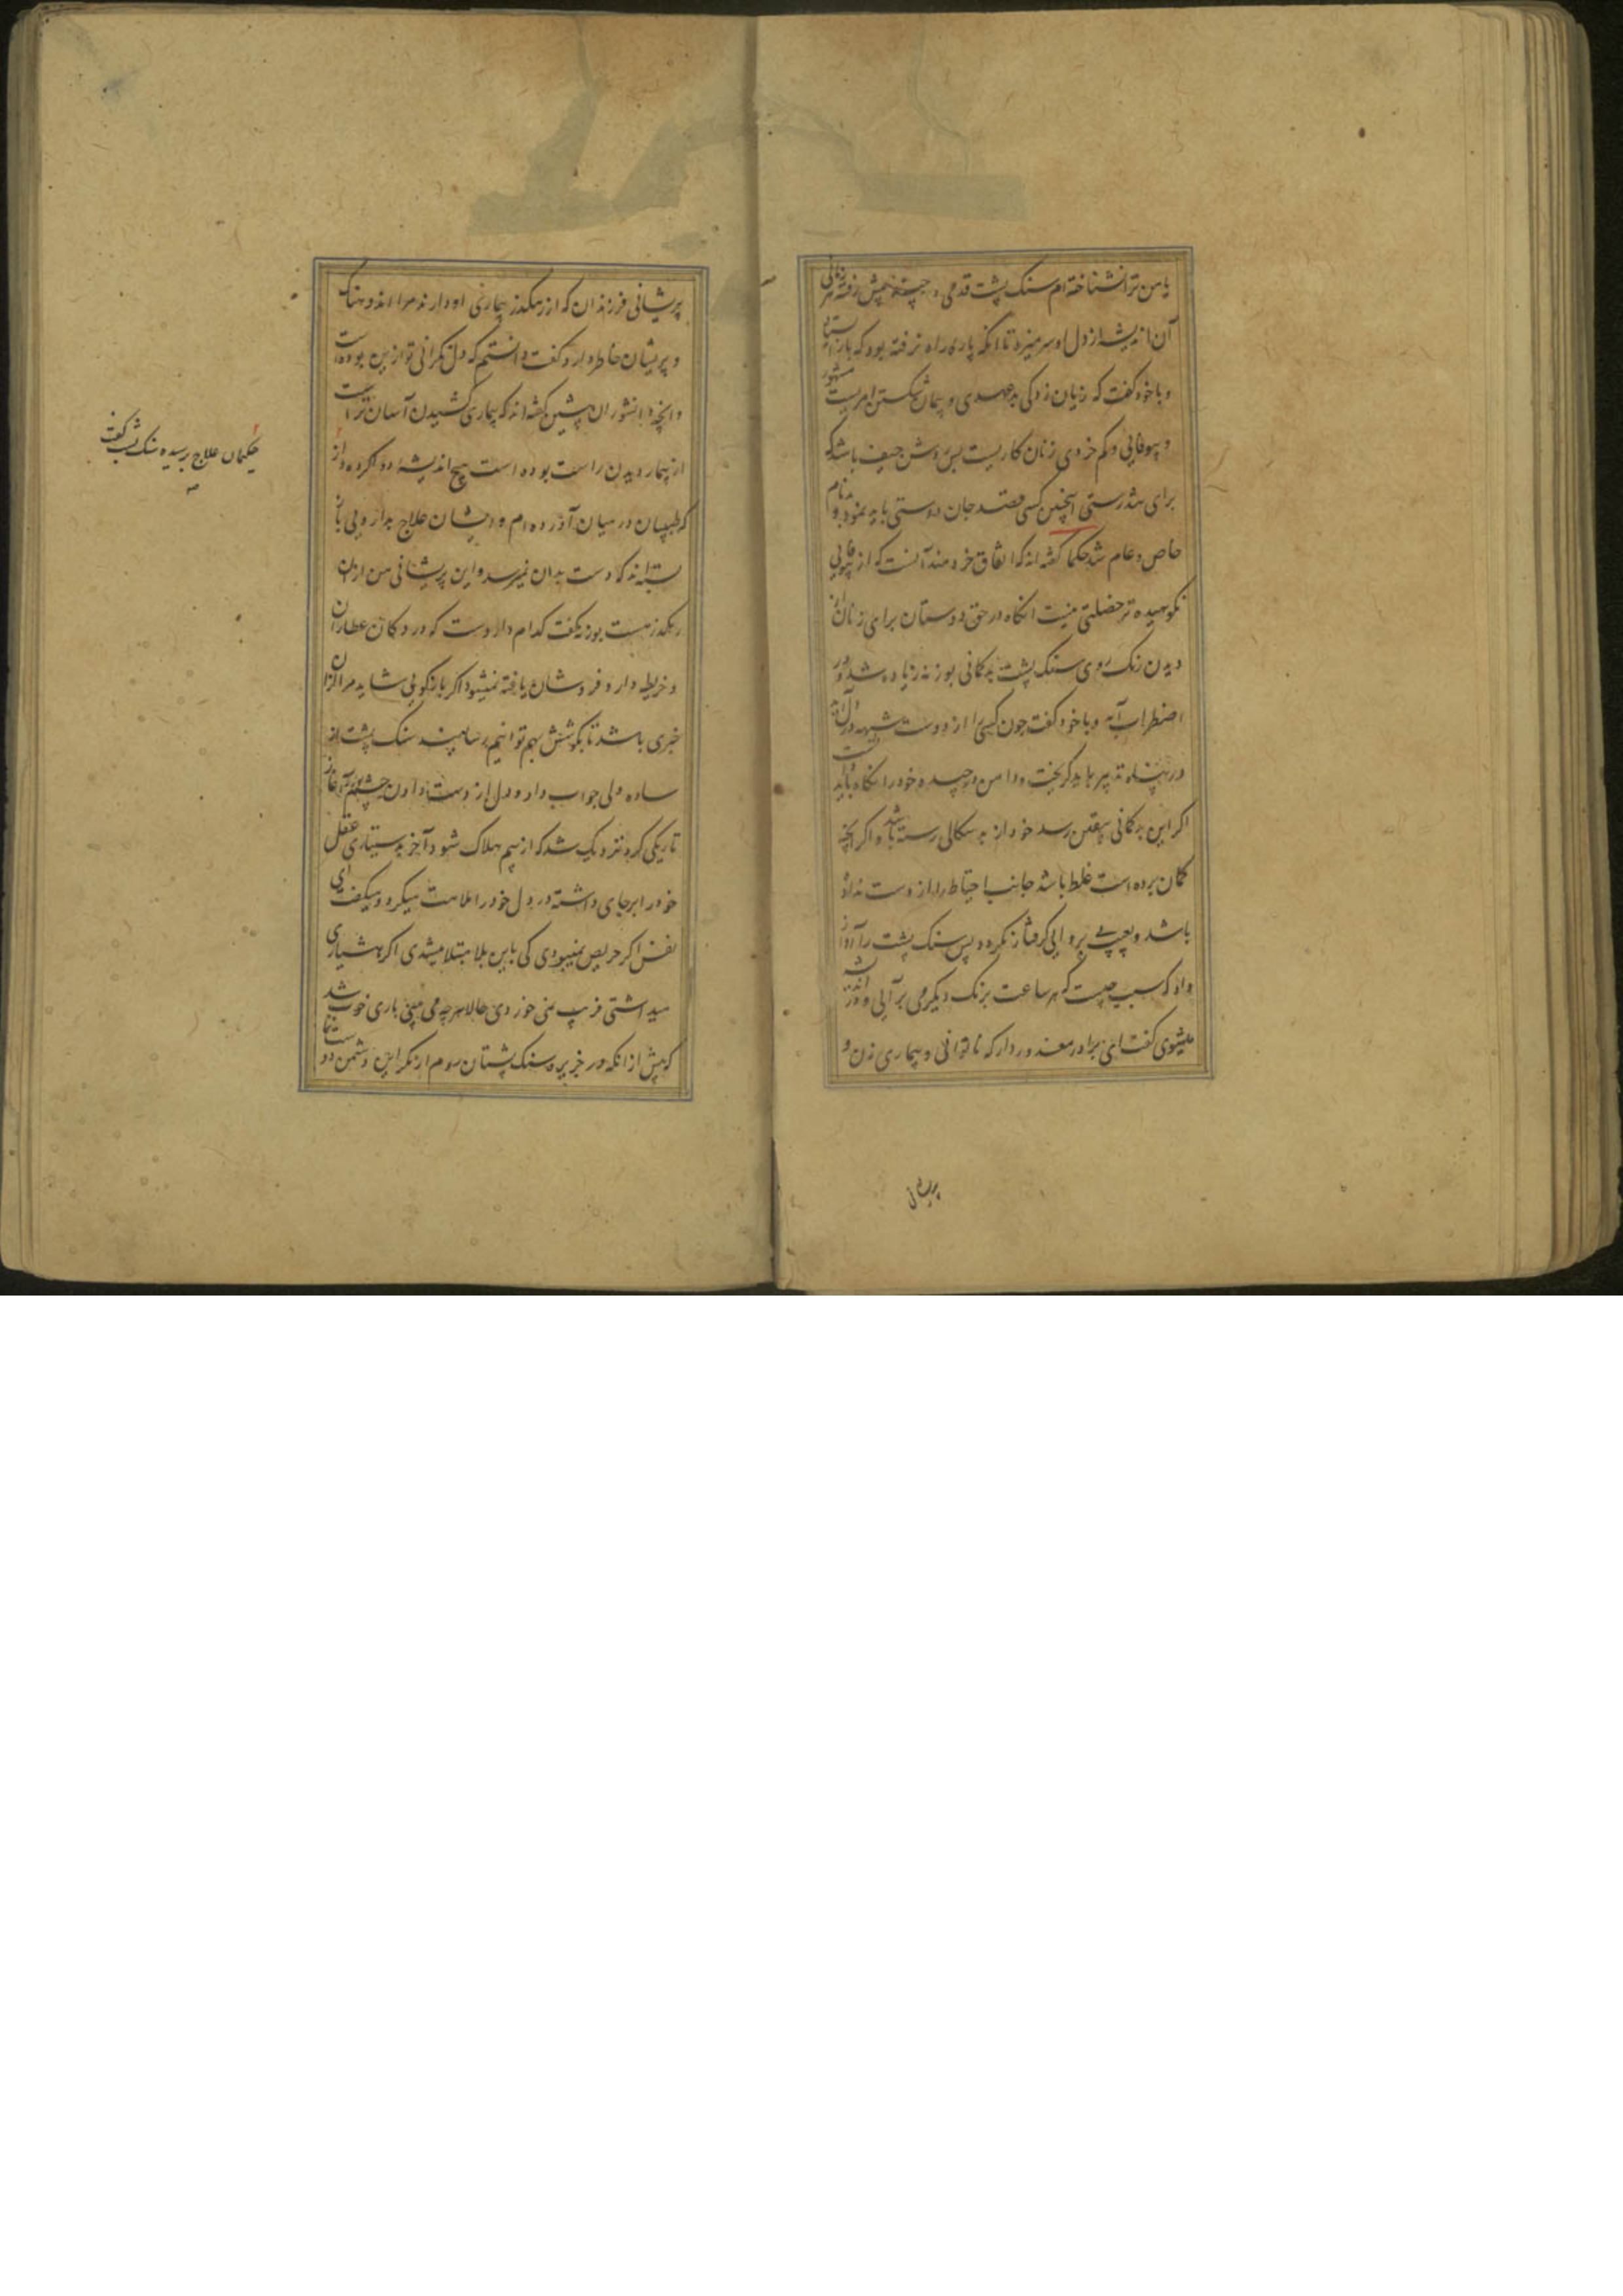 یا من ترا نشناخته ام سنک پشت قدمی و چند پیش رفته
آن اندیشه از دل او سر میزد تا آنکه پاره راه نرفته بود که باز
و باخود کفت که زیان زدکی بدعهدی و پیمان شکستن امریست مشهور
و بیوفایی و کم خردی زنان کاریست بس روشن حیف باشد که
برای تندرستی اینچنین کسی قصد جان دوستی باید نمود و بدنام
خاص و عام شد حکما کفته اند که اتفاق خردمند آنست که از بیوفایی
نکوهیده تر خصلتی نیست انکاه در حق دوستان برای زنان از
دیدن رنک روی سنک پشت بدکمانی بوزنه زیاده شد و در
اضطراب آمد و باخود کفت چون کسی را از دوست شبهه در دل آید
در پناه تدبیر باید کریخت و دامن درچیده خود را نکاه باید داشت
اکر این بدکمانی بیقین رسد خود از بدسکالی رسته باشد و اکر آنچه
کمان برده است غلط باشد جانب احتیاط را از دست نداده
باشد و بعیب بی پروایی کرفتار نکردد پس سنک پشت را آواز
داد که سبب چیست که هر ساعت برنک دیکر می برآیی و اندیشه
میشوی کفت ای برادر معذور دار که ناتوانی و بیماری زن و
پریشانی
پریشانی فرزندان که از رهکذر بیماری او دارند مرا اندوهناک
و پریشان خاطر دارد کفت دانستم که دل نکرانی تو ازین بوده است
و آنچه دانشوران پیشین کفته اند که بیماری کشیدن آسان تر است
از بیمار دیدن راست بوده است هیچ اندیشه دوا کرده از
که طبیبان در میان آورده ام و ایشان علاج بدارویی باز
بسته اند که دست بدان نمیرسد و این پریشانی من ازان
رهکذر هست بوزنه کفت کدام داروست که در دکان عطاران
و خریطه دارو فروشان یافته نمیشود اکر بازکویی شاید مرا ازان
خبری باشد تا بکوشش بهم توانیم رسانید سنک پشت از
ساده دلی جواب داد و دل از دست دادن چشم بوزنه آغاز
تاریکی کرد نزدیک شد که از بیم هلاک شود آخر بدستیاری عقل
خود را برجای داشته در دل خود را ملامت میکرد و میکفت ای
نفس اکر حریص نمیبودی کی باین بلا مبتلا میشدی اکر هشیاری
میداشتی فریب نمی خوردی حالا هرچه می بینی باری خوب شد
که پیش از انکه در جزیره سنک پشتان روم از مکر این دشمن دوست نما
حکیمان علاج پرسیده سنک پشت کفت